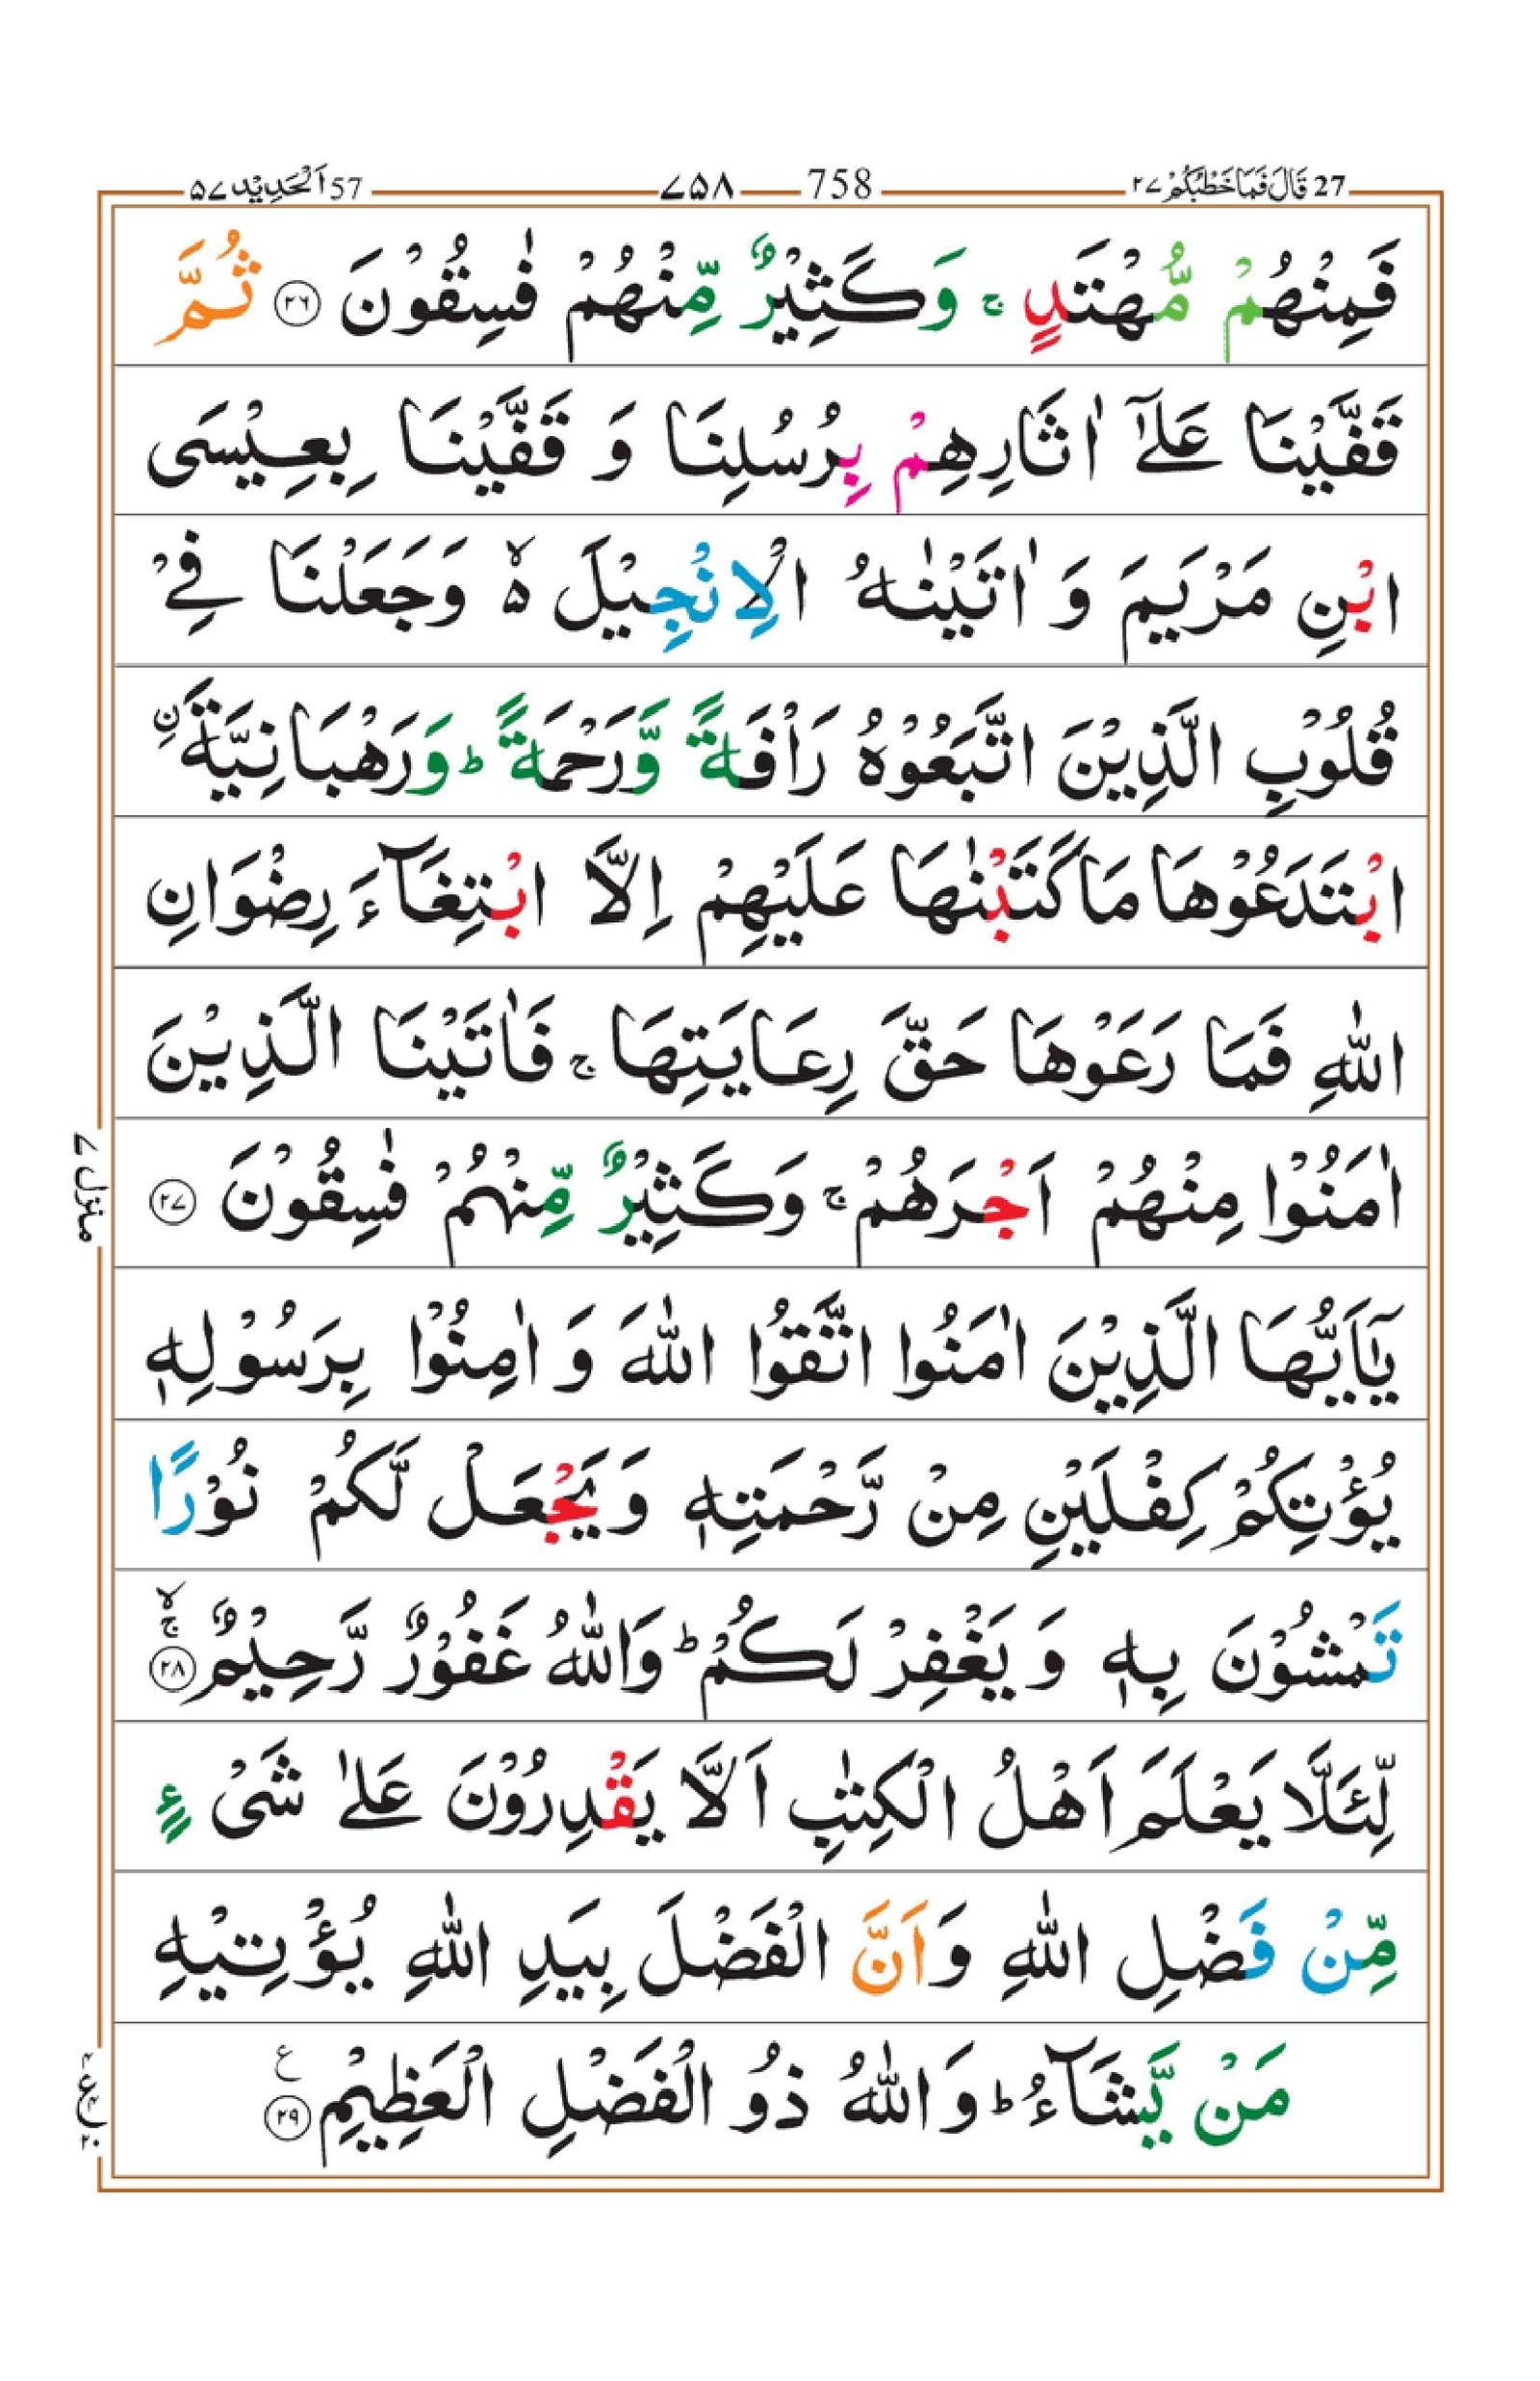 27 قَالَ فَمَا خَطْبُكُمْ ٢٧
758 ۷۵۸
57 اَلْحَدِيْد ۵۷
فَمِنْهُمْ مُّهْتَدٍ ۚ وَكَثِيْرٌ مِّنْهُمْ فٰسِقُوْنَ ﴿۲۶﴾ ثُمَّ
قَفَّيْنَا عَلٰۤى اٰثَارِهِمْ بِرُسُلِنَا وَ قَفَّيْنَا بِعِيْسَى
ابْنِ مَرْيَمَ وَ اٰتَيْنٰهُ الْاِنْجِيْلَ ۙ۬ وَجَعَلْنَا فِيْ
قُلُوْبِ الَّذِيْنَ اتَّبَعُوْهُ رَاْفَةً وَّرَحْمَةً ؕ وَرَهْبَانِيَّةَ ۨ
ابْتَدَعُوْهَا مَا كَتَبْنٰهَا عَلَيْهِمْ اِلَّا ابْتِغَآءَ رِضْوَانِ
اللّٰهِ فَمَا رَعَوْهَا حَقَّ رِعَايَتِهَا ۚ فَاٰتَيْنَا الَّذِيْنَ
اٰمَنُوْا مِنْهُمْ اَجْرَهُمْ ۚ وَكَثِيْرٌ مِّنْهُمْ فٰسِقُوْنَ ﴿۲۷﴾
يٰۤاَيُّهَا الَّذِيْنَ اٰمَنُوا اتَّقُوا اللّٰهَ وَ اٰمِنُوْا بِرَسُوْلِهٖ
يُؤْتِكُمْ كِفْلَيْنِ مِنْ رَّحْمَتِهٖ وَيَجْعَلْ لَّكُمْ نُوْرًا
تَمْشُوْنَ بِهٖ وَيَغْفِرْ لَكُمْ ؕ وَاللّٰهُ غَفُوْرٌ رَّحِيْمٌ ﴿۲۸﴾ ۚ ۙ
لِّئَلَّا يَعْلَمَ اَهْلُ الْكِتٰبِ اَلَّا يَقْدِرُوْنَ عَلٰى شَىْءٍ
مِّنْ فَضْلِ اللّٰهِ وَاَنَّ الْفَضْلَ بِيَدِ اللّٰهِ يُؤْتِيْهِ
مَنْ يَّشَآءُ ؕ وَاللّٰهُ ذُو الْفَضْلِ الْعَظِيْمِ ﴿۲۹﴾ ع
منزل ۷